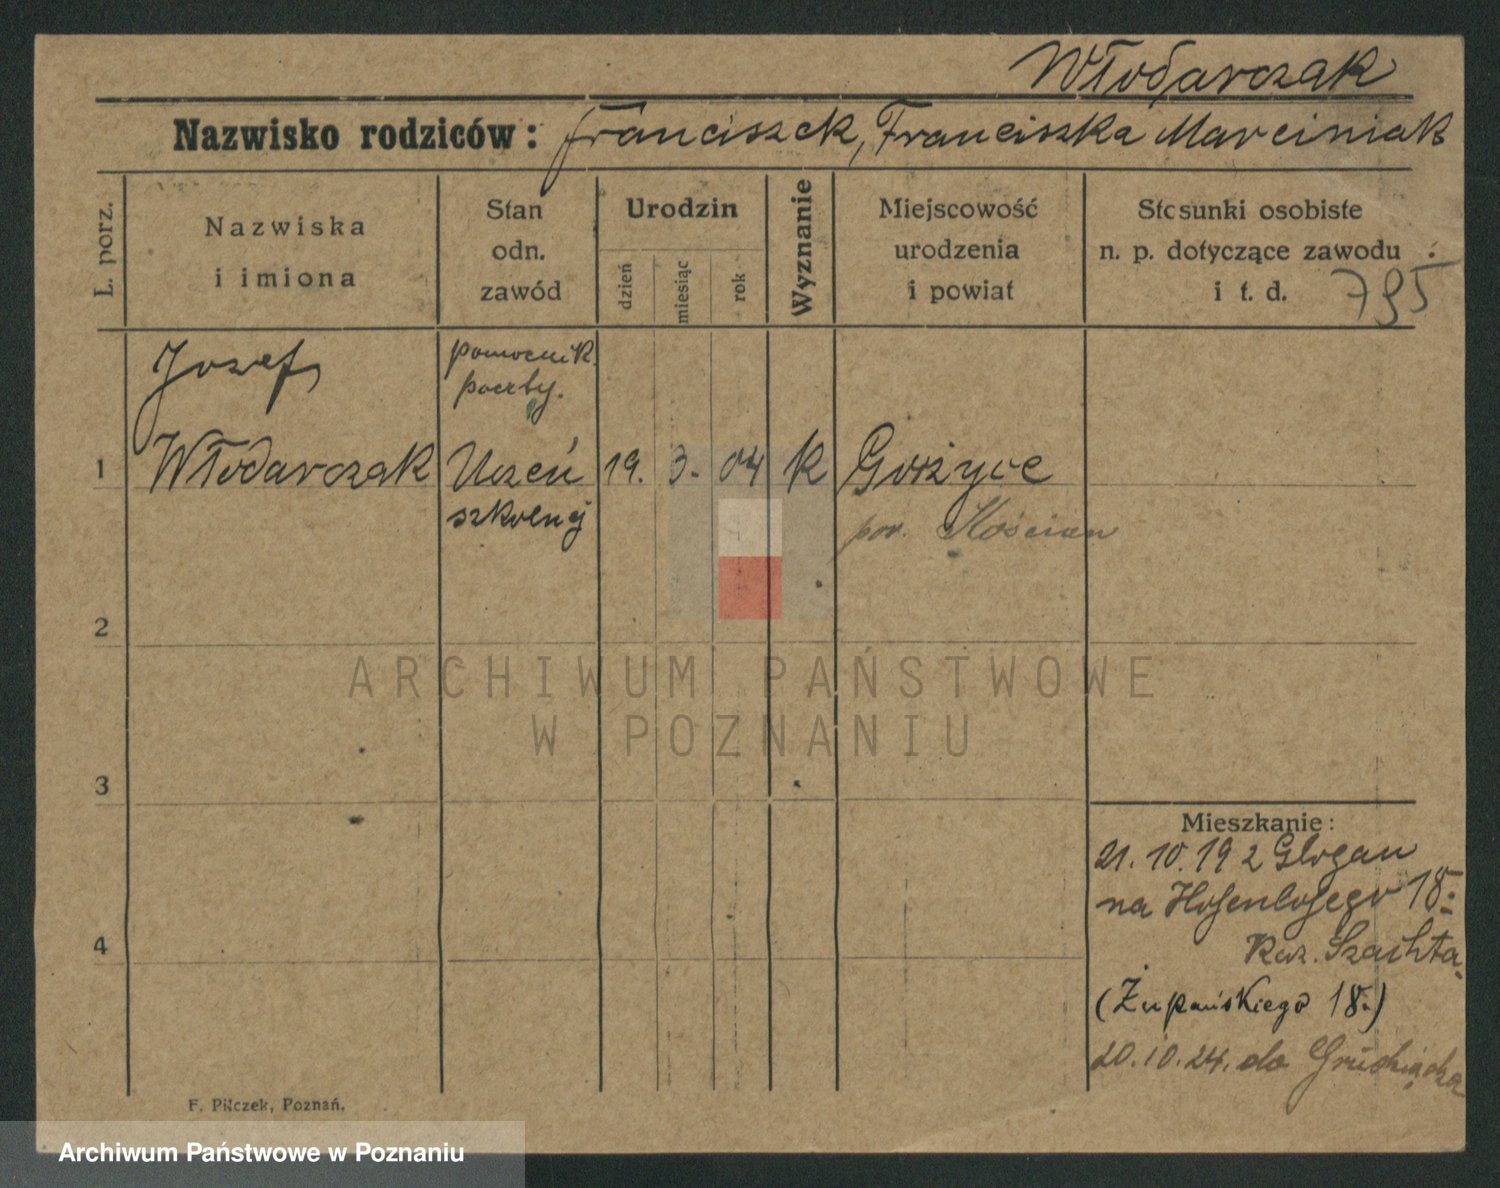 Włodarczak
Nazwisko rodziców: Franciszek, Franciszka Marciniak
L. porz.
Nazwiska
i imiona
Stan
odn.
zawód
Urodzin
dzień
miesiąc
rok
Wyznanie
Miejscowość
urodzenia
i powiat
Stosunki osobiste
n. p. dotyczące zawodu
i t. d.
795
1
Józef
Włodarczak
pomocnik
poczty.
Uczeń
szkolny
19. 3. 04
k
Gorzyce
pow. Kościan
2
3
4
Mieszkanie:
21. 10. 19 z Glogau
na Hohenlohego 18.
Szachta
(Żupańskiego 18.)
20. 10. 24. do Grudziądza
F. Pilczek, Poznań.
ARCHIWUM PAŃSTWOWE
W POZNANIU
Archiwum Państwowe w Poznaniu